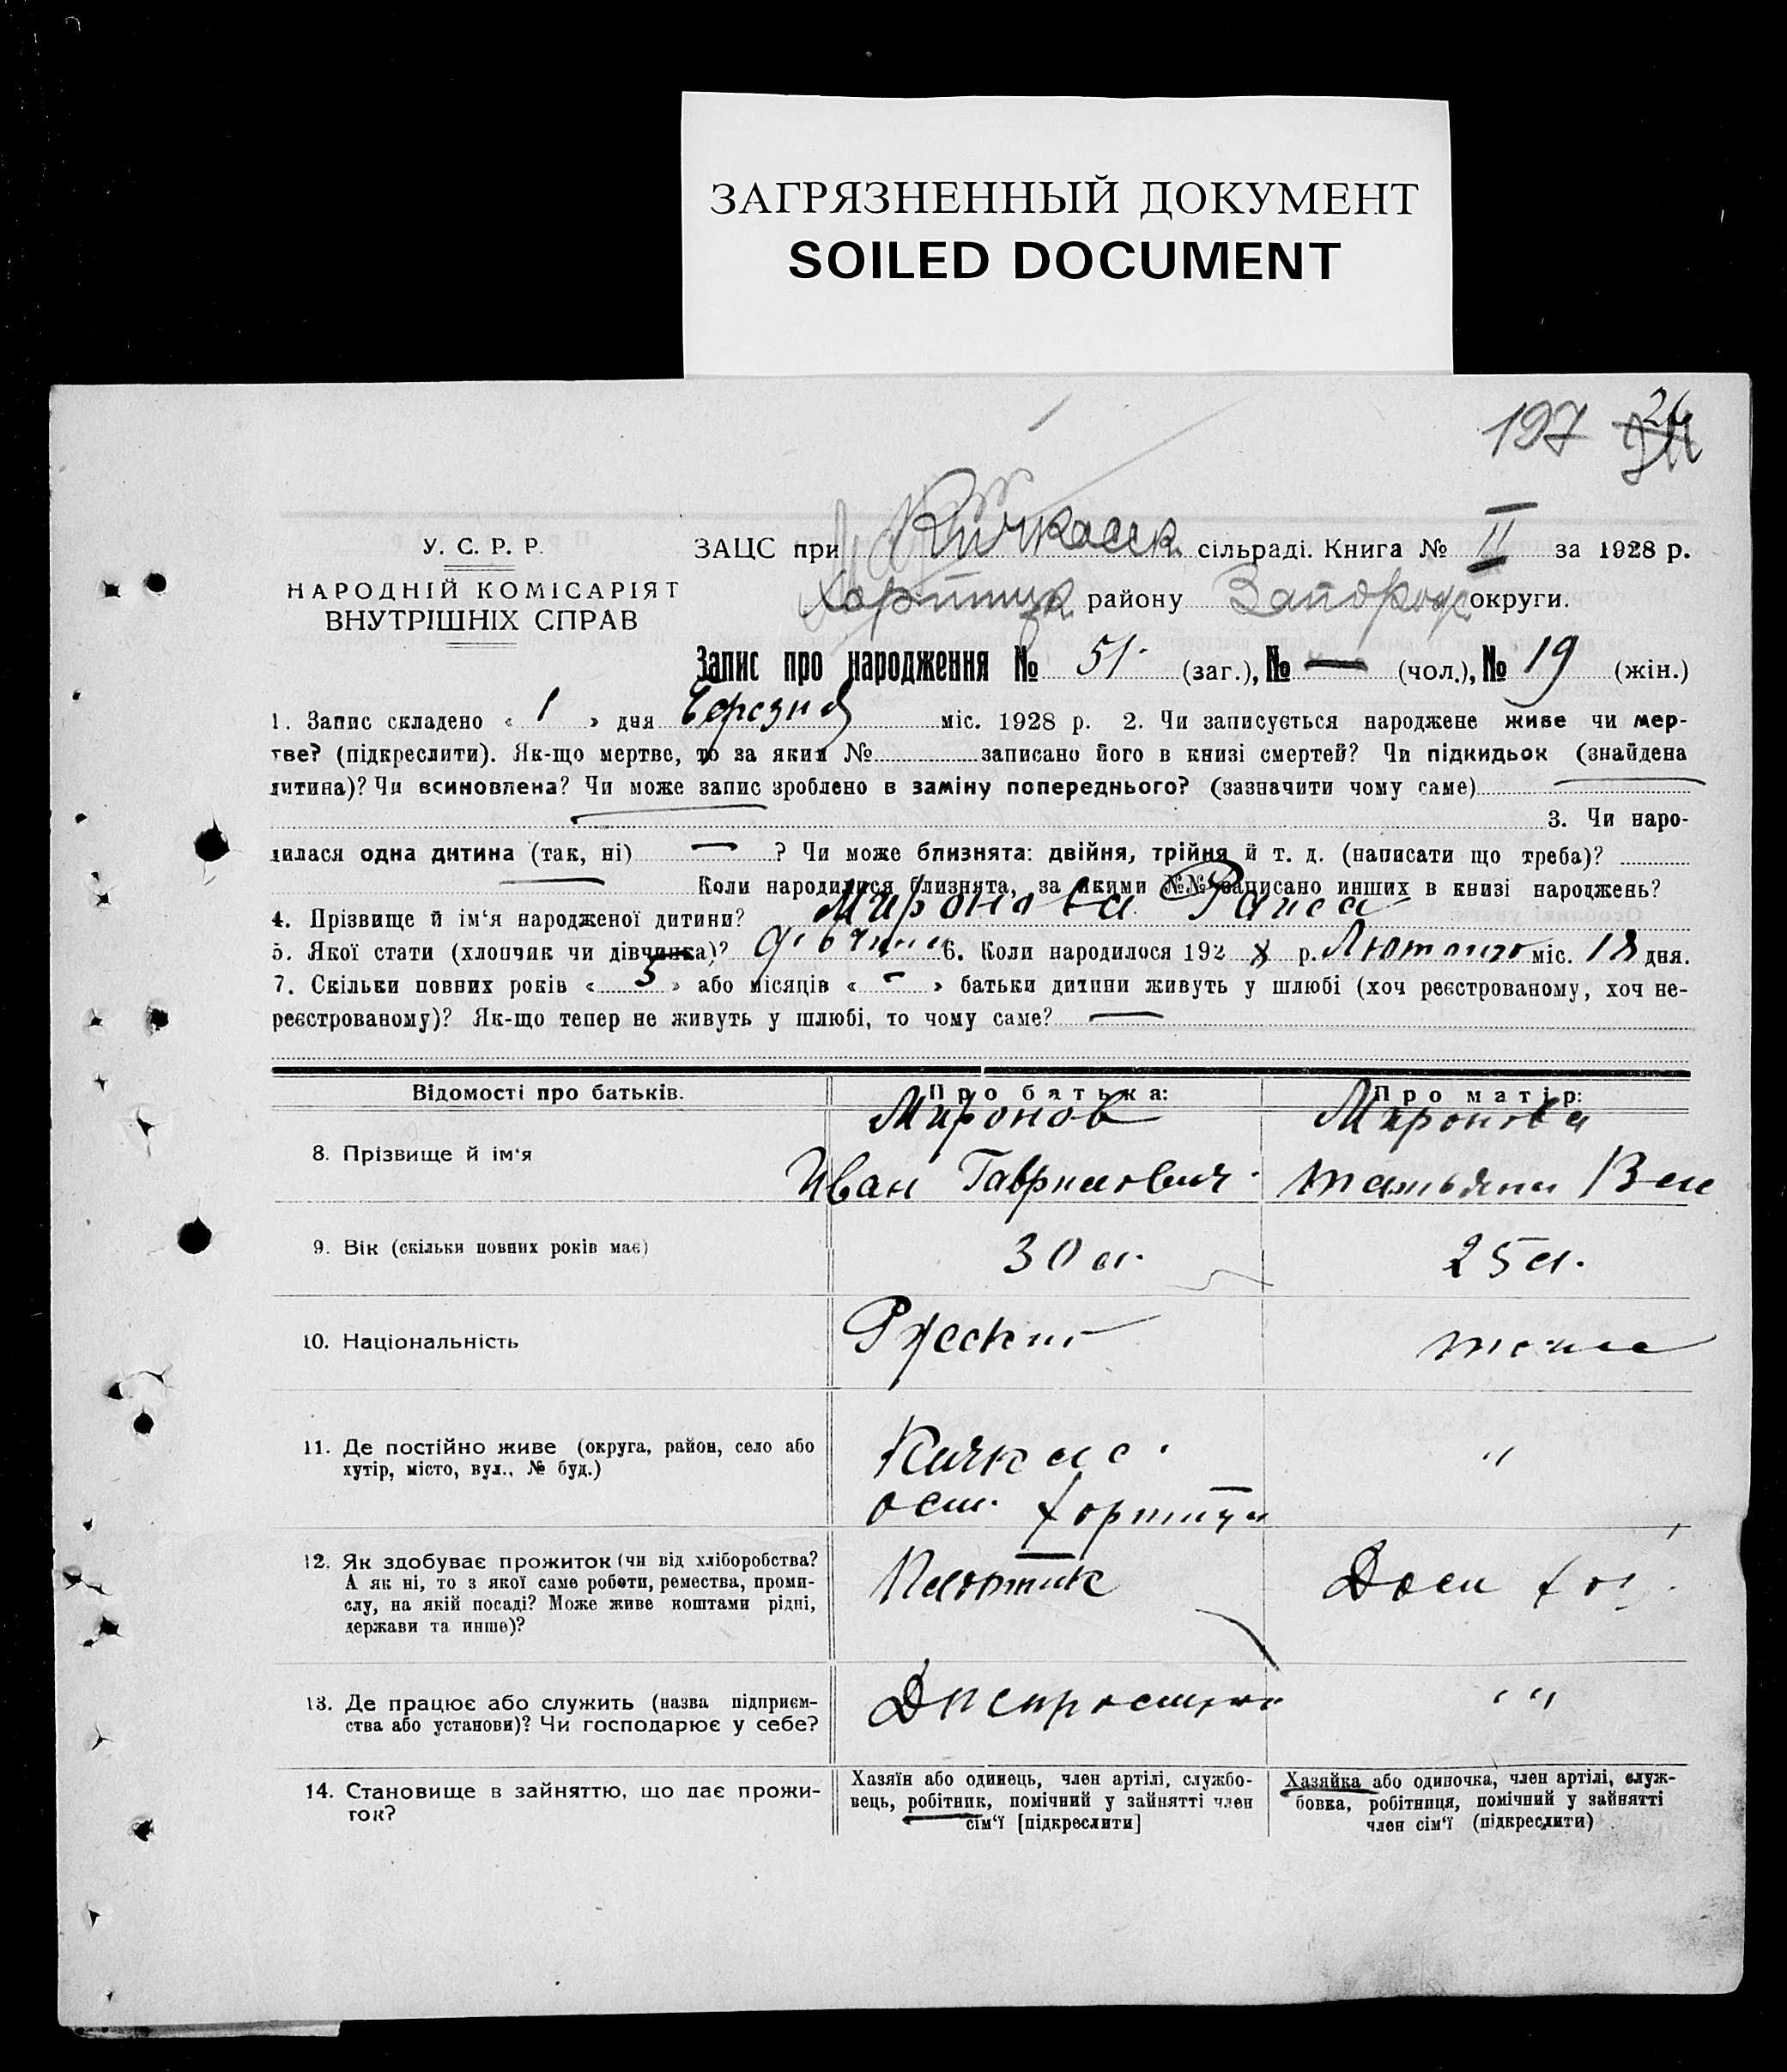 ЗАГРЯЗНЕННЫЙ ДОКУМЕНТ
SOILED DOCUMENT
197 26
У. С. Р. Р.
НАРОДНІЙ КОМІСАРІЯТ
ВНУТРІШНІХ СПРАВ
ЗАЦС при Кичкасск. сільраді. Книга № II за 1928 р.
Хортицк району Запорож округи.
Запис про народження № 51. (заг.), № — (чол.), № 19 (жін.)
1. Запис складено « 1 » дня березня міс. 1928 р. 2. Чи записується народжене живе чи мер-
тве? (підкреслити). Як-що мертве, то за яким № записано його в книзі смертей? Чи підкидьок (знайдена
дитина)? Чи всиновлена? Чи може запис зроблено в заміну попереднього? (зазначити чому саме) —
— 3. Чи наро-
дилася одна дитина (так, ні) — ? Чи може близнята: двійня, трійня й т. д. (написати що треба)?
— Коли народилися близнята, за якими №№ записано инших в книзі народжень?
4. Прізвище й ім‘я народженої дитини? Миронова Раиса
5. Якої стати (хлопчик чи дівчинка)? дівчина 6. Коли народилося 192 8 р. Лютого міс. 18 дня.
7. Скільки повних років « 5 » або місяців « - » батьки дитини живуть у шлюбі (хоч реєстрованому, хоч не-
реєстрованому)? Як-що тепер не живуть у шлюбі, то чому саме? —
Відомості про батьків. Про батька: Про матір:
8. Прізвище й ім‘я Миронов Миронова
Иван Гаврилович. Татьяна Вас
9. Вік (скільки повних років має) 30 л. 25 л.
10. Національність Русский тоже
11. Де постійно живе (округа, район, село або
хутір, місто, вул., № буд.)
Кичкас. "
ост. Хортица
12. Як здобуває прожиток (чи від хліборобства?
А як ні, то з якої саме роботи, ремества, проми-
слу, на якій посаді? Може живе коштами рідні,
держави та инше)?
Плотник Дом хоз.
13. Де працює або служить (назва підприєм-
ства або установи)? Чи господарює у себе?
Днепрострой " "
14. Становище в зайняттю, що дає прожи-
ток?
Хазяїн або одинець, член артілі, службо-
вець, робітник, помічний у зайнятті член
сім‘ї [підкреслити]
Хазяйка або одиночка, член артілі, служ-
бовка, робітниця, помічний у зайнятті
член сім‘ї (підкреслити)